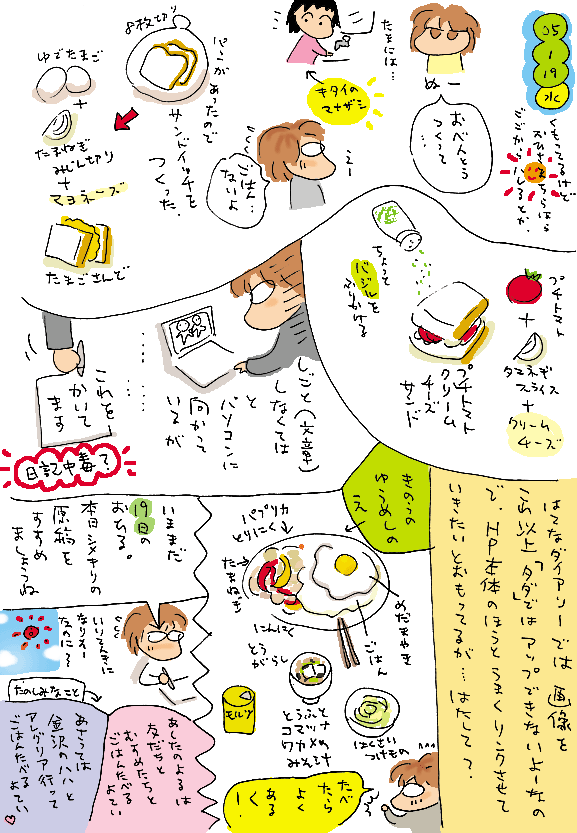 05
1
19
水
くもってるけど
おひさまてらほら
ぬー
おべんとう
つくって
たまには…
キタイの
マナザシ
ごはん…
ないよ
パンがあったので
サンドイッチを
つくった.
8枚切り
ゆでたまご
+
たまねぎ
みじん切り
+
マヨネーズ
たまごさんど
プチトマト
+
タマネギ
スライス
+
クリーム
チーズ
ちょっと
バジルを
ふりかける
プチトマト
クリーム
チーズ
サンド
しごと(文章)
しなくては
と
パソコンに
向かって
いるが
……
……
これを
かいて
ます
日記中毒?
はてなダイアリーでは 画像を
これ以上「タダ」ではアップできないよーなの
で、HP本体のほうとうまくリンクさせて
いきたいとおもってるが… はたして?
きのうの
ゆうめしの
え
パプリカ
とりにく
たまねぎ
にんにく
とう
がらし
めだまやき
ごはん
とうふと
コマツナ
ワカメの
みそ汁
はくさい
つけもの
モルツ
たべ
たら
よく
ある
く
!
いままだ
19日の
おひる。
本日シメキリの
原稿を
すすめ
ましょうね
いいてんきに
なりそー
なのに?
たのしみなこと
あしたのよるは
友だちと
むすめたちと
ごはんたべる
よてい
あさっては
金沢のハハと
アレグリア行って
ごはんたべる
よてい